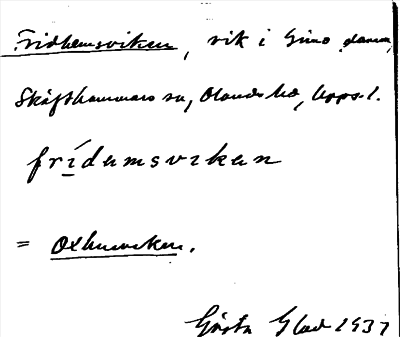 Fridhemsviken, vik i Gimo damm,
Skäfthammars sn, Olands hd, Upps. l.
frídamsvikan
= Oxhusviken.
Gösta Glad 1937